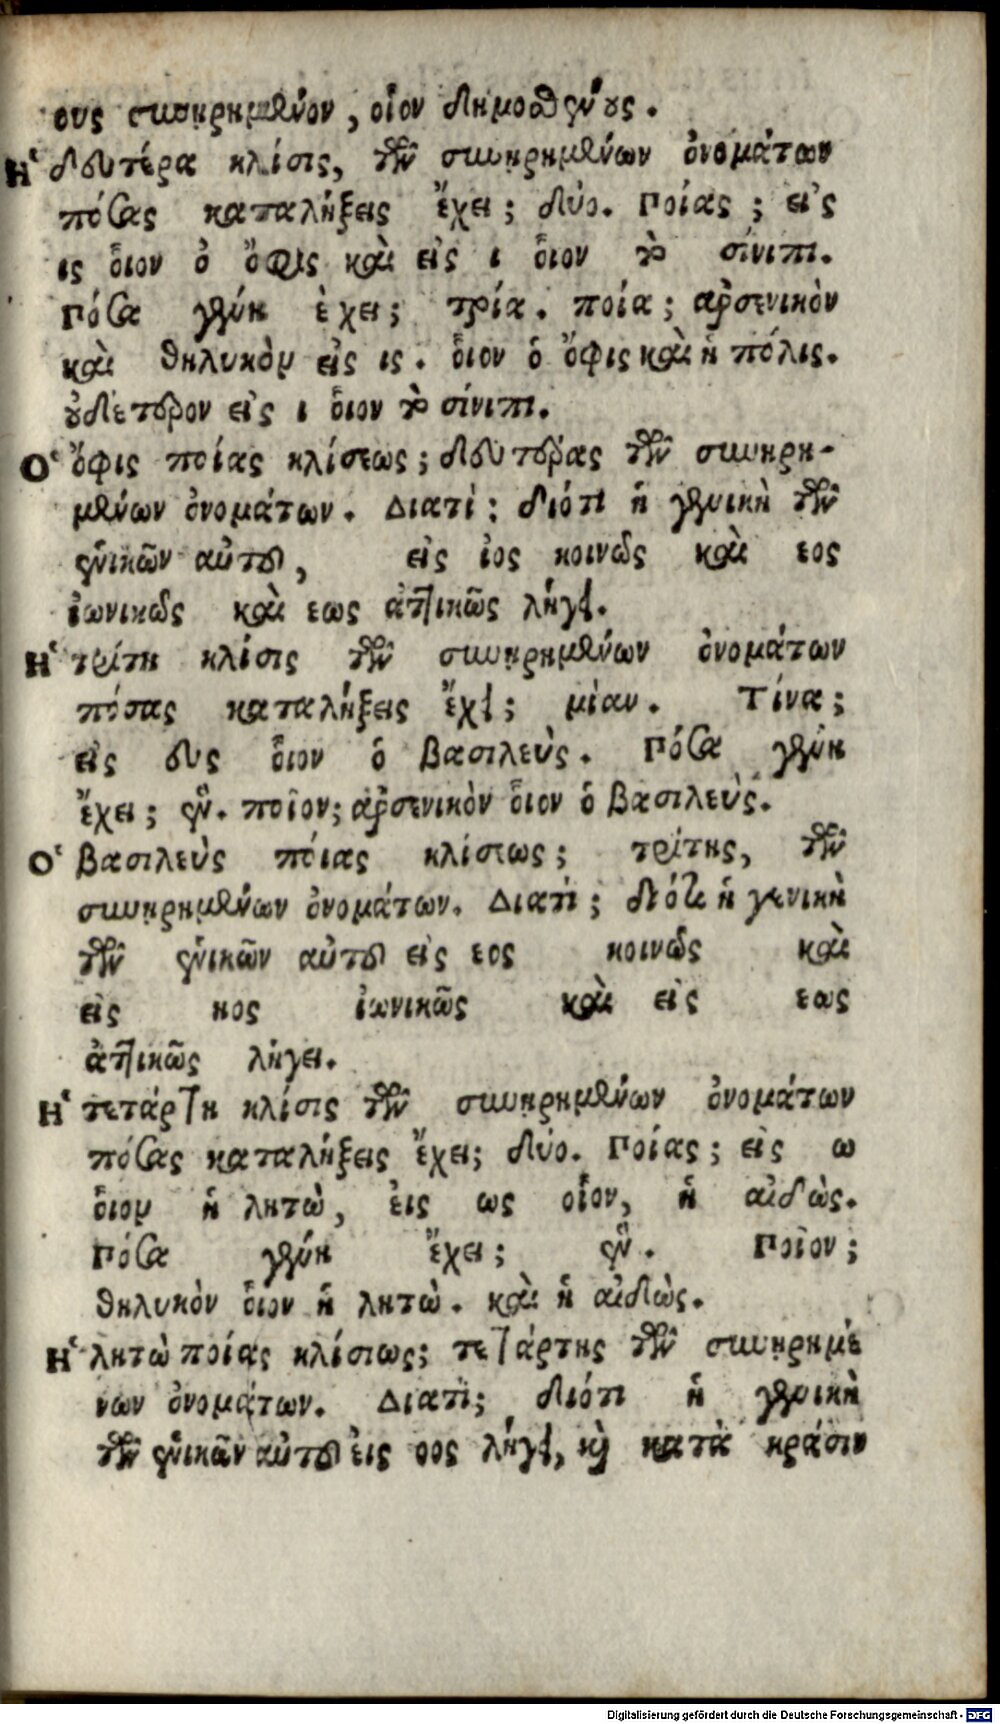 ους συνῃρημένον, οἷον δημοσθένους.
Ἡ δευτέρα κλίσις, τῶν συνῃρημένων ὀνομάτων
πόσας καταλήξεις ἔχει; δύο. Ποίας; εἰς
ις οἷον ὁ ὄφις καὶ εἰς ι οἷον τὸ σίνιπι.
Πόσα γένη ἔχει; τρία. ποία; αρσενικὸν
καὶ θηλυκὸν εἰς ις. οἷον ὁ ὄφις καὶ ἡ πόλις.
οὐδέτερον εἰς ι οἷον τὸ σίνιπι.
Ὁ ὄφις ποίας κλίσεως; δευτέρας τῶν συνῃρη-
μένων ὀνομάτων. Διατί; διότι ἡ γενικὴ τῶν
ἑνικῶν αὐτοῦ, εἰς ιος κοινῶς καὶ εος
ἰωνικῶς καὶ εως ἀττικῶς λήγει.
Ἡ τρίτη κλίσις τῶν συνῃρημένων ὀνομάτων
πόσας καταλήξεις ἔχει; μίαν. Τίνα;
εἰς ευς οἷον ὁ βασιλεὺς. Πόσα γένη
ἔχει; ἓν. ποῖον; αρσενικὸν οἷον ὁ βασιλεὺς.
Ὁ βασιλεὺς ποίας κλίσεως; τρίτης, τῶν
συνῃρημένων ὀνομάτων. Διατί; διότι ἡ γενικὴ
τῶν ἑνικῶν αὐτοῦ εἰς εος κοινῶς καὶ
εἰς ηος ἰωνικῶς καὶ εἰς εως
ἀττικῶς λήγει.
Ἡ τετάρτη κλίσις τῶν συνῃρημένων ὀνομάτων
πόσας καταλήξεις ἔχει; δύο. Ποίας; εἰς ω
οἷον ἡ λητὼ, εἰς ως οἷον, ἡ αἰδὼς.
Πόσα γένη ἔχει; ἓν. Ποῖον;
θηλυκὸν οἷον ἡ λητὼ. καὶ ἡ αἰδὼς.
Ἡ λητὼ ποίας κλίσεως; τετάρτης τῶν συνῃρημέ
νων ὀνομάτων. Διατί; διότι ἡ γενικὴ
τῶν ἑνικῶν αὐτοῦ εἰς οος λήγει, καὶ κατὰ κράσιν
Digitalisierung gefördert durch die Deutsche Forschungsgemeinschaft - DFG